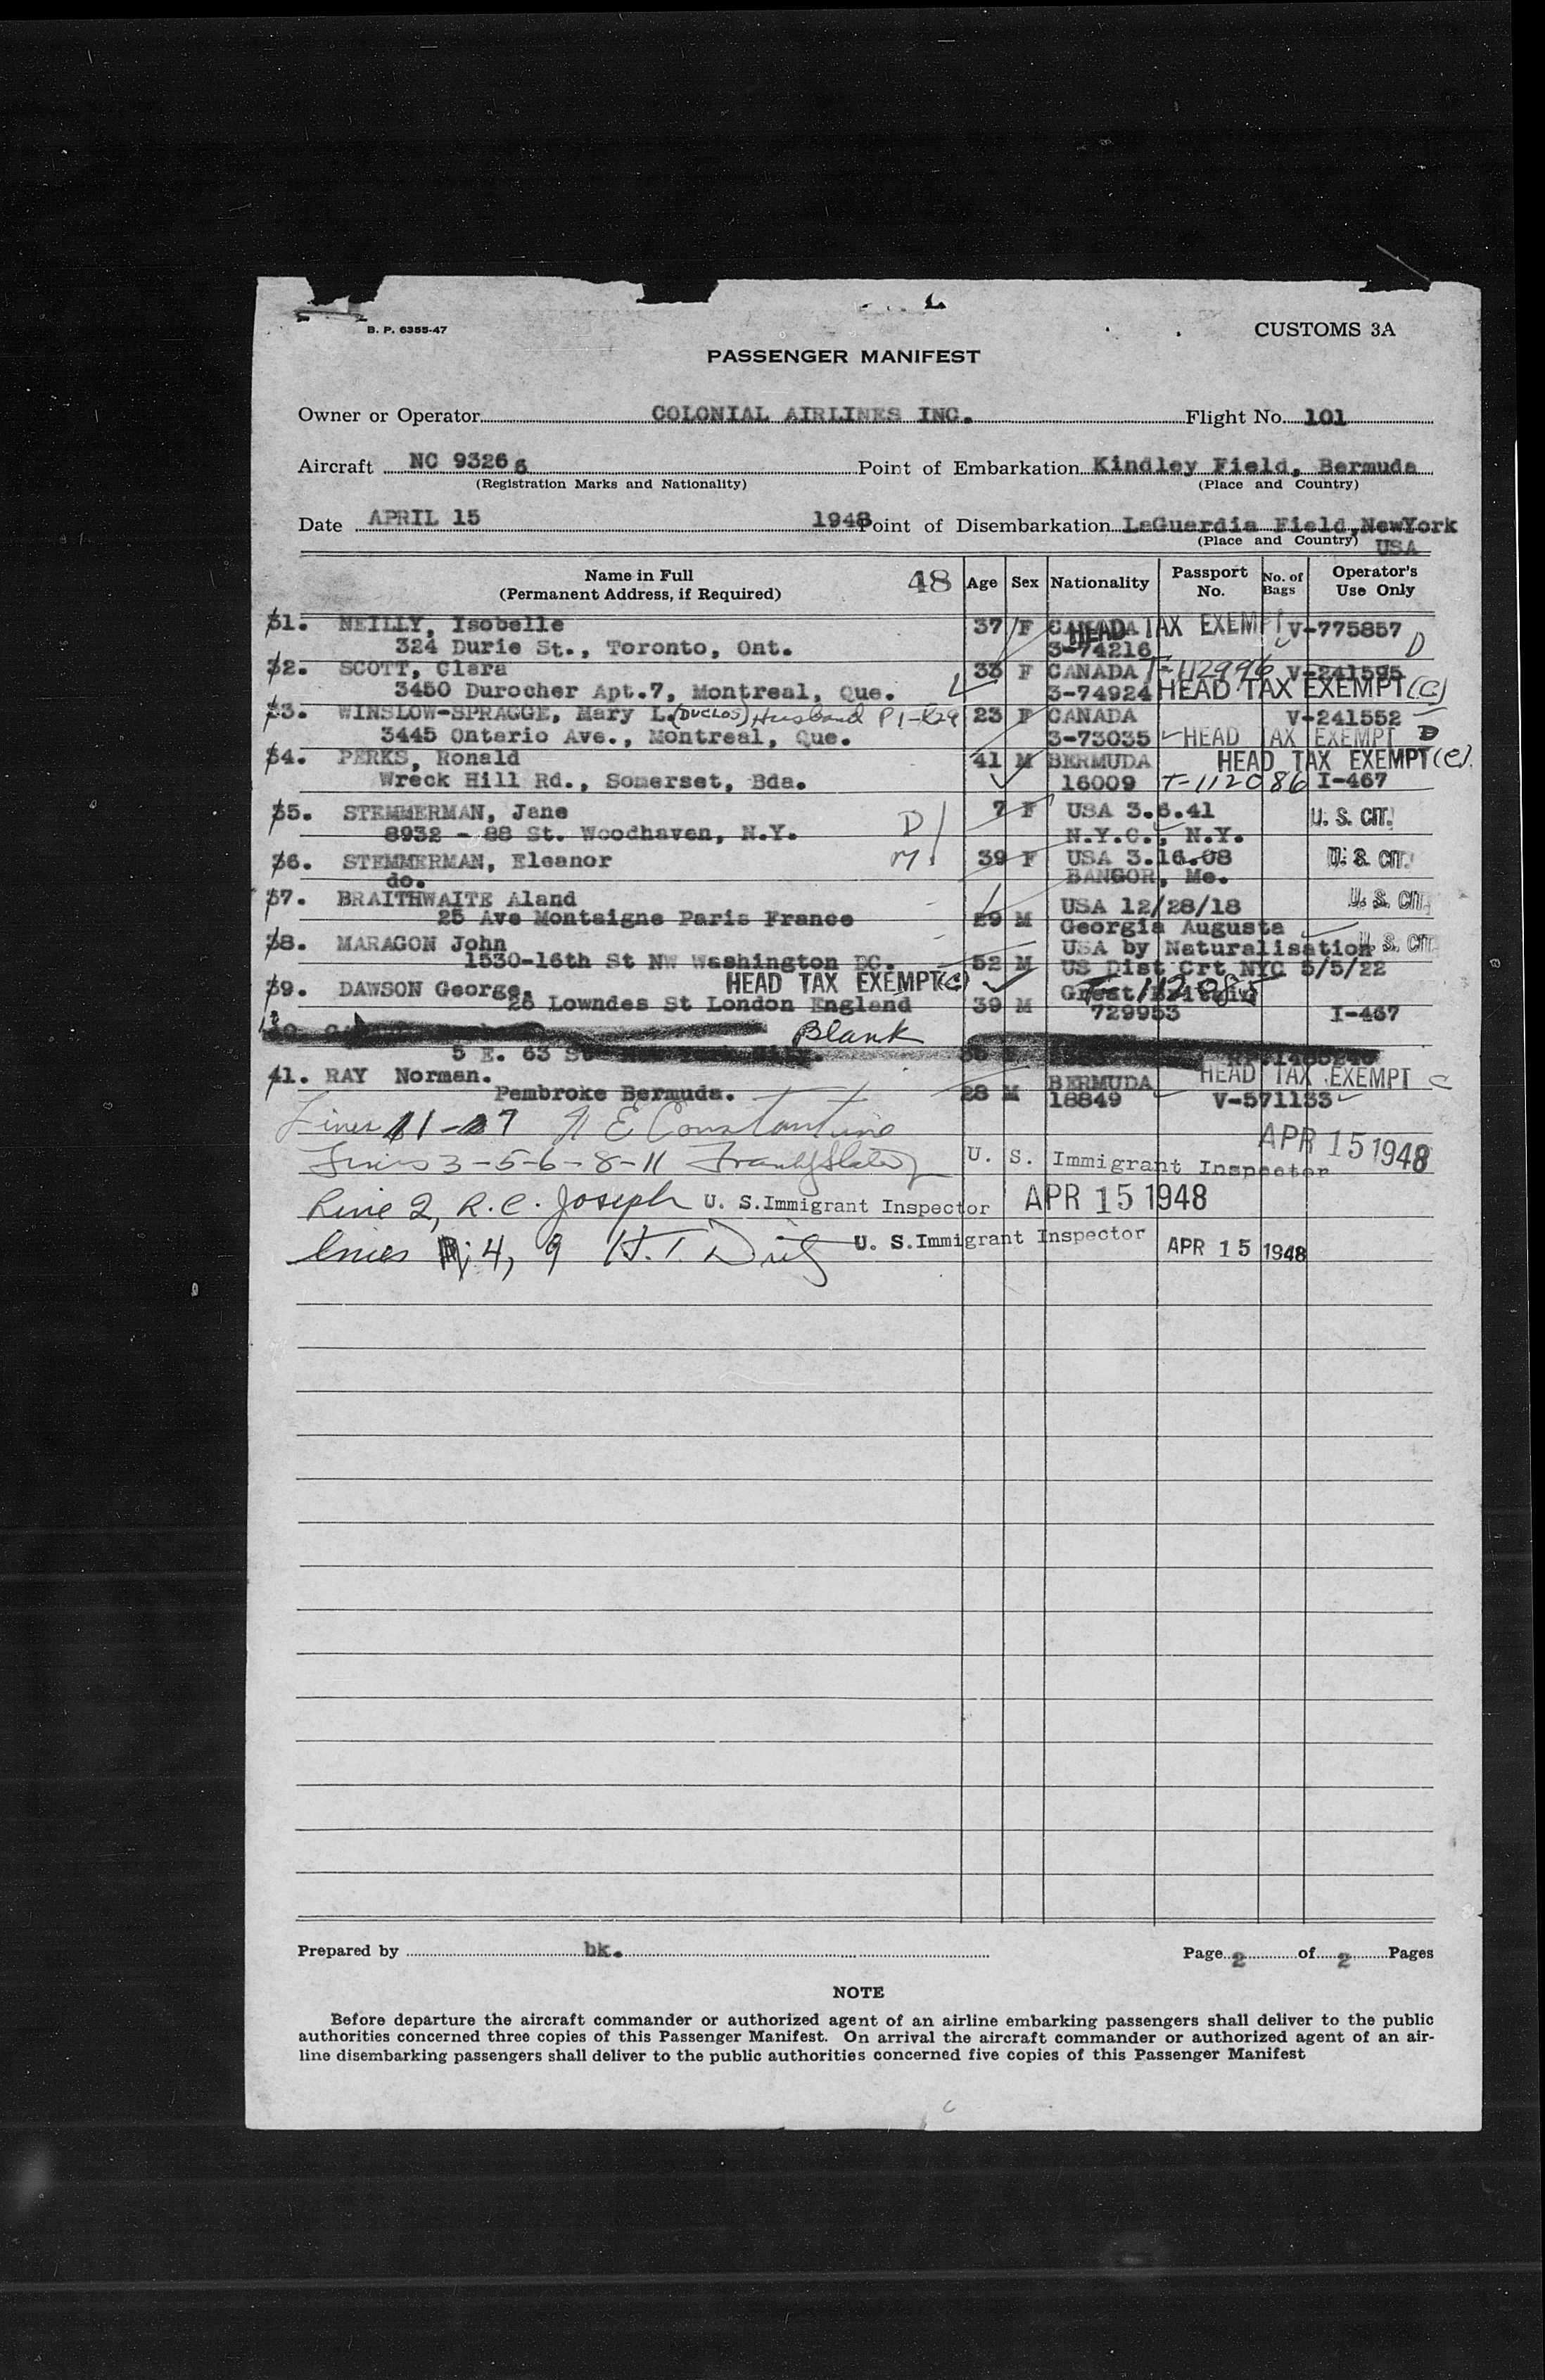 B. P. 6355-47
CUSTOMS 3A
PASSENGER MANIFEST
Owner or Operator COLONIAL AIRLINES INC. Flight No. 101
Aircraft NC 93266 Point of Embarkation Kindley Field, Bermuda
(Registration Marks and Nationality) (Place and Country)
Date APRIL 15 1948 Point of Disembarkation LaGuardia Field, NewYork
(Place and Country) USA
Name in Full 48 Age Sex Nationality Passport No. No. of Bags Operator's Use Only
(Permanent Address, if Required)
31. NEILLY, Isobelle 37 F CANADA HEAD TAX EXEMPT V-775857
324 Durie St., Toronto, Ont. 3-74216 D
32. SCOTT, Clara 33 F CANADA T-112996 V-241595
3450 Durocher Apt.7, Montreal, Que. 3-74924 HEAD TAX EXEMPT (C)
33. WINSLOW-SPRAGGE, Mary L. (DUCLOS) Husband P1-L29 23 F CANADA V-241552
3445 Ontario Ave., Montreal, Que. 3-73035 HEAD TAX EXEMPT D
34. PERKS, Ronald 41 M BERMUDA HEAD TAX EXEMPT (C).
Wreck Hill Rd., Somerset, Bda. 16009 T-112086 I-467
35. STEMMERMAN, Jane D 7 F USA 3.6.41 U. S. CIT.
8932 - 88 St. Woodhaven, N.Y. N.Y.C., N.Y.
36. STEMMERMAN, Eleanor M. 39 F USA 3.16.08 U. S. CIT.
do. BANGOR, Me.
37. BRAITHWAITE Aland USA 12/28/18 U. S. CIT.
25 Ave Montaigne Paris France 29 M Georgia Augusta
38. MARAGON John USA by Naturalisation U. S. CIT.
1530-16th St NW Washington DC. 52 M US Dist Crt NYC 5/5/22
39. DAWSON George. HEAD TAX EXEMPT (C) Great Britain
26 Lowndes St London England 39 M 729953 I-467
Blank
5 E. 63 St
41. RAY Norman. BERMUDA HEAD TAX EXEMPT C
Pembroke Bermuda. 28 M 18849 V-571133
Lines 1 - 7 A E Constantino
Lines 3-5-6-8-11 U. S. Immigrant Inspector APR 15 1948
Line 2, R. C. Joseph U. S. Immigrant Inspector APR 15 1948
Lines 4, 9 H. T. U. S. Immigrant Inspector APR 15 1948
Prepared by bk. Page 2 of 2 Pages
NOTE
Before departure the aircraft commander or authorized agent of an airline embarking passengers shall deliver to the public
authorities concerned three copies of this Passenger Manifest. On arrival the aircraft commander or authorized agent of an air-
line disembarking passengers shall deliver to the public authorities concerned five copies of this Passenger Manifest